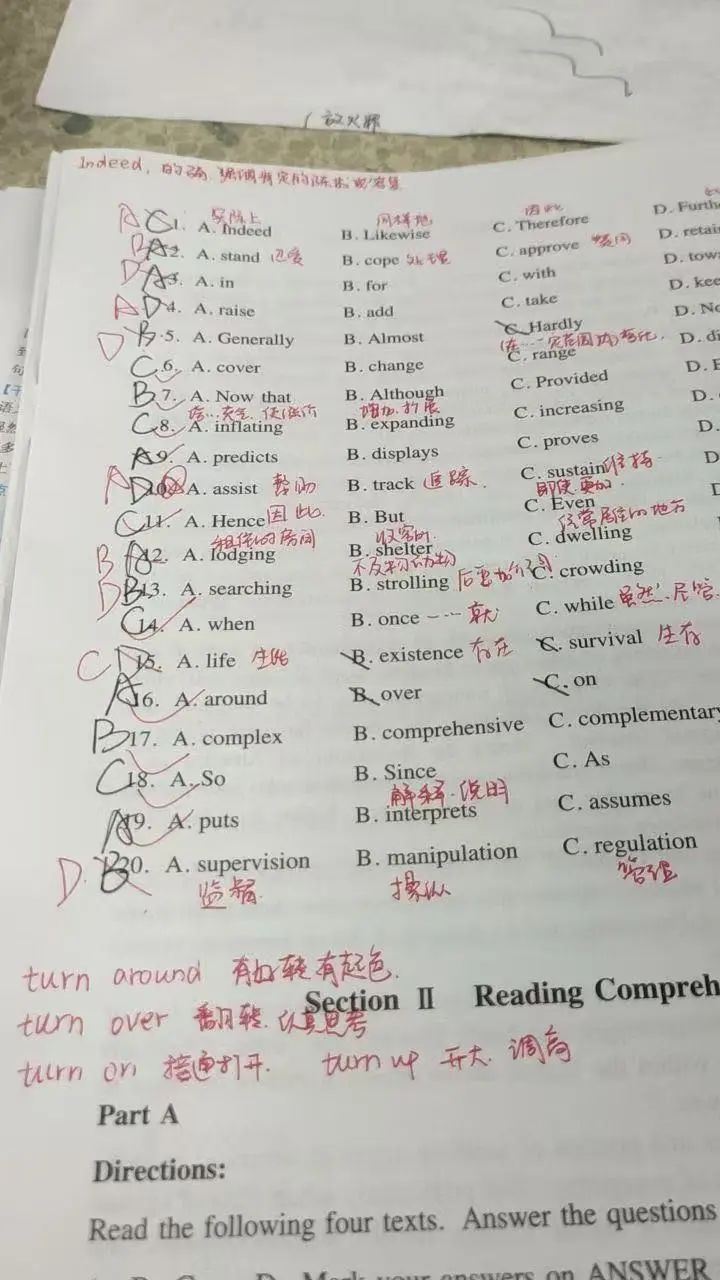 放火罪
Indeed, 的确
A C 1. A. Indeed 实际上 B. Likewise 同样地 C. Therefore 因此 D. Furth
B A 2. A. stand 忍受 B. cope 处理 C. approve D. retai
D A 3. A. in B. for C. with D. tow
A D 4. A. raise B. add C. take D. kee
D B 5. A. Generally B. Almost C. Hardly D. No
C 6. A. cover B. change C. range D. di
B 7. A. Now that B. Although C. Provided D. E
C 8. A. inflating B. expanding 增加.扩展 C. increasing D.
A 9. A. predicts B. displays C. proves D.
A D 10. A. assist 帮助 B. track 追踪. C. sustain 维持 D
C 11. A. Hence 因此. B. But C. Even 即使 更加 D
B A 12. A. lodging 租住的房间 B. shelter C. dwelling 经常居住的地方
D B 13. A. searching B. strolling C. crowding
C 14. A. when B. once 一……就 C. while 虽然.尽管.
C D 15. A. life 生活 B. existence 存在 C. survival 生存
A 16. A. around B. over C. on
B 17. A. complex B. comprehensive C. complementary
C 18. A. So B. Since C. As
A 19. A. puts B. interprets 解释.说明 C. assumes
D. B 20. A. supervision 监督 B. manipulation 操纵 C. regulation 管理
turn around 有好转.有起色.
Section Ⅱ Reading Compreh
turn over 翻转.认真思考
turn on 接通打开. turn up 开大.调高
Part A
Directions:
Read the following four texts. Answer the questions
your answers on ANSWER